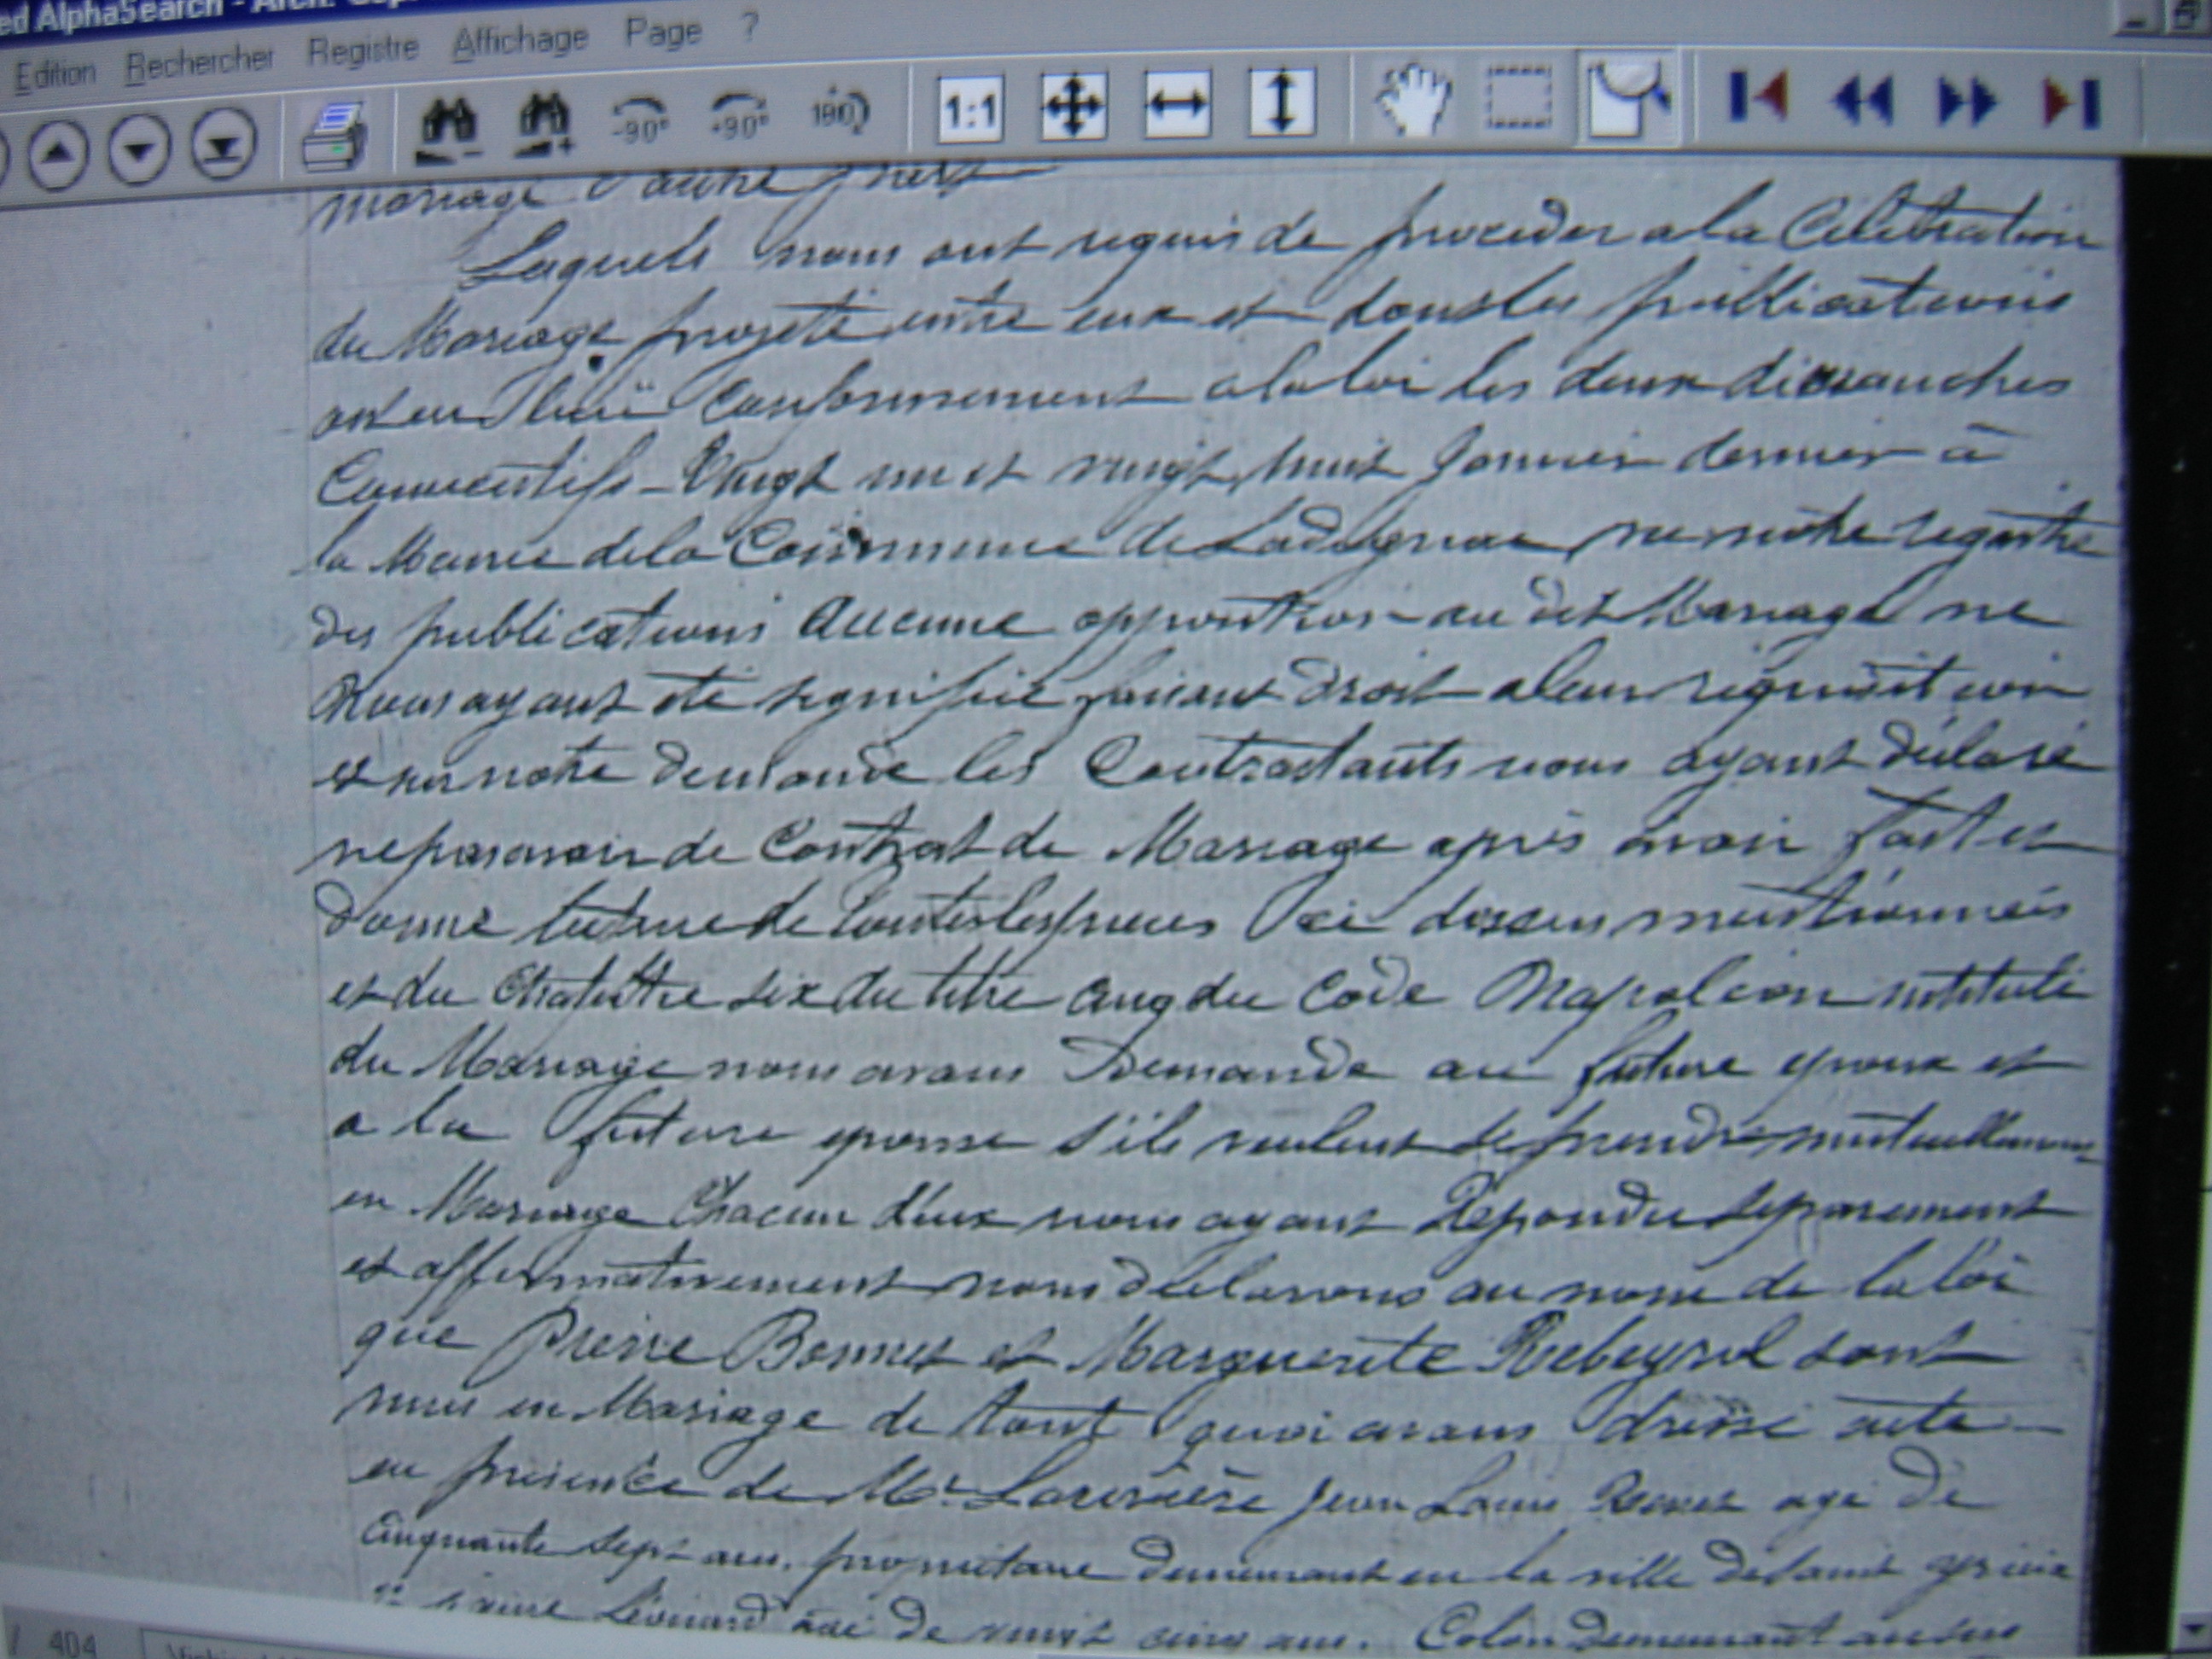 ed AlphaSearch - Arch.
Edition Rechercher Registre Affichage Page ?
-90° +90° 180 1:1
mariage d'autre part
Lesquels nous ont requis de proceder a la Célébration
du Mariage projeté entre eux et dont les publications
ont eu lieu conformement a la loi les deux dimanches
Consecutifs - Vingt un et vingt huit Janvier dernier à
la Mairie de la Commune de Ladignac vu notre registre
des publications Aucune opposition au dit Mariage ne
Nous ayant été signifiée faisant droit a leur réquisition
et sur notre demande les Contractants nous ayant déclaré
ne pas avoir de Contrat de Mariage après avoir fait et
donné lecture de toutes les pieces ci dessus mentionnées
et du Chapitre six du titre cinq du Code Napoléon intitulé
du Mariage nous avons Demandé au future epoux et
a la future epouse s'ils veulent se prendre mutuellement
en Mariage Chacun d'eux nous ayant Répondu separement
et affirmativement nous déclarons au nom de la loi
que Pierre Bonnet et Marguerite Rebeyrol sont
unis en Mariage de tout quoi avons dressé acte
en présence de Mr. Lariviere Jean Louis agé de
Cinquante sept ans. propriétaire demeurant en la ville de Saint yrieix
2° Léonard agé de vingt cinq ans. Colon demeurant
/ 404